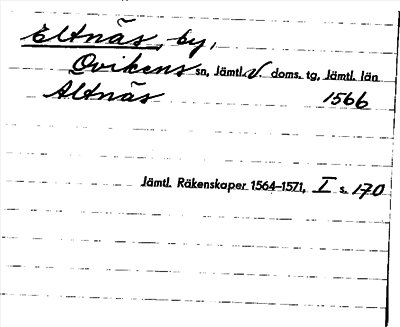 Eltnäs, by,
Ovikens sn, Jämtl. V. doms. tg, Jämtl. län
Altnäs 1566
Jämtl. Räkenskaper 1564-1571, I s. 170